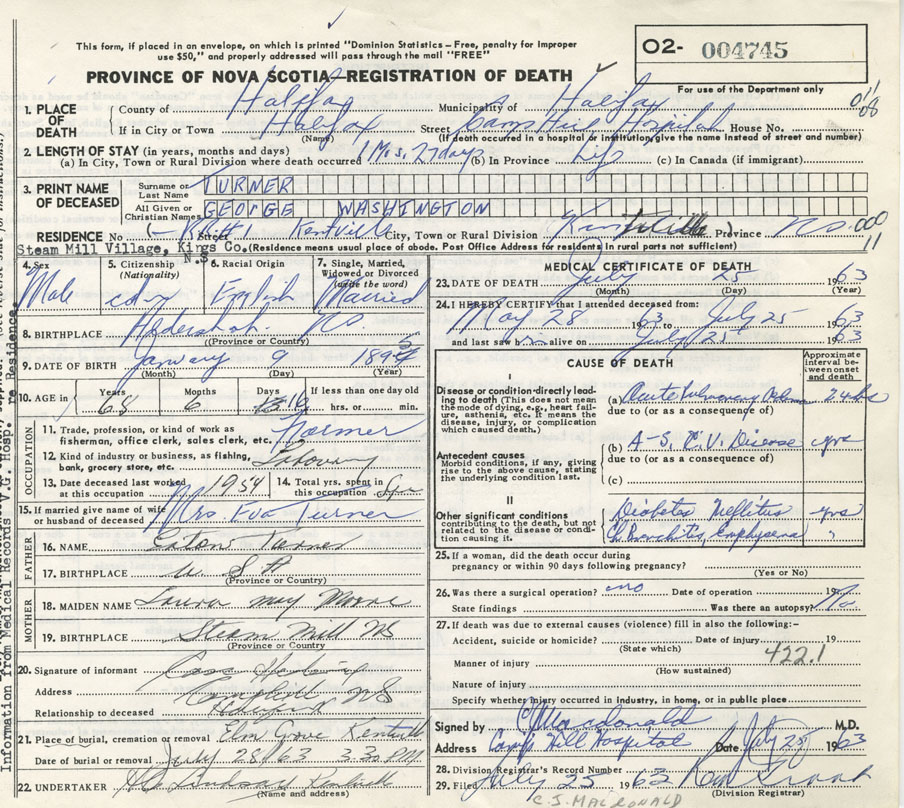 This form, if placed in an envelope, on which is printed "Dominion Statistics – Free, penalty for improper
use $50," and properly addressed will pass through the mail "FREE"
02- 004745
PROVINCE OF NOVA SCOTIA—REGISTRATION OF DEATH
For use of the Department only
1. PLACE OF DEATH County of Halifax Municipality of Halifax
If in City or Town Halifax Street Camp Hill Hospital House No.
(Name) (If death occurred in a hospital or institution, give the name instead of street and number)
2. LENGTH OF STAY (in years, months and days)
(a) In City, Town or Rural Division where death occurred 1 Mos. 27 days (b) In Province Life (c) In Canada (if immigrant)
3. PRINT NAME OF DECEASED Surname or Last Name TURNER
All Given or Christian Names GEORGE WASHINGTON
RESIDENCE Street Kentville City, Town or Rural Division Province N.S. 000
11
Steam Mill Village, Kings Co. (Residence means usual place of abode. Post Office Address for residents in rural parts not sufficient)
N.S
4. Sex Male
5. Citizenship (Nationality) cdn
6. Racial Origin English
7. Single, Married, Widowed or Divorced (write the word) Married
8. BIRTHPLACE Aldershot N.S.
(Province or Country)
9. DATE OF BIRTH January 9
(Month) (Day) (Year)
10. AGE in Years 68 Months 6 Days 16 If less than one day old hrs. or min.
OCCUPATION
11. Trade, profession, or kind of work as fisherman, office clerk, sales clerk, etc. Farmer
12. Kind of industry or business, as fishing, bank, grocery store, etc.
13. Date deceased last worked at this occupation 1954
14. Total yrs. spent in this occupation
15. If married give name of wife or husband of deceased Mrs. Eva Turner
FATHER
16. NAME Eaton Turner
17. BIRTHPLACE U.S.A
(Province or Country)
MOTHER
18. MAIDEN NAME Laura May Moore
19. BIRTHPLACE Steam Mill NS
(Province or Country)
20. Signature of informant
Address NS
Relationship to deceased
21. Place of burial, cremation or removal Elm Grove Kentville
Date of burial or removal July 28/63 3.30 P.M.
22. UNDERTAKER
(Name and address)
MEDICAL CERTIFICATE OF DEATH
23. DATE OF DEATH July 25 1963
(Month) (Day) (Year)
24. I HEREBY CERTIFY that I attended deceased from:
May 28 1963 to July 25 1963
and last saw him alive on July 25 1963
CAUSE OF DEATH
Approximate interval between onset and death
I
Disease or condition directly leading to death (This does not mean the mode of dying, e.g., heart failure, asthenia, etc. It means the disease, injury, or complication which caused death.)
(a) Acute Pulmonary Oedema 24 hrs
due to (or as a consequence of)
Antecedent causes
Morbid conditions, if any, giving rise to the above cause, stating the underlying condition last.
(b) A-S. C.V. Disease yrs
due to (or as a consequence of)
(c)
II
Other significant conditions
contributing to the death, but not related to the disease or condition causing it.
Diabetes Mellitus yrs
Ch. Bronchitis Emphysema "
25. If a woman, did the death occur during
pregnancy or within 90 days following pregnancy?
(Yes or No)
26. Was there a surgical operation? no Date of operation 19
State findings Was there an autopsy? No
27. If death was due to external causes (violence) fill in also the following:–
Accident, suicide or homicide? Date of injury 19
(State which)
422.1
Manner of injury
(How sustained)
Nature of injury
Specify whether injury occurred in industry, in home, or in public place
Signed by C J Macdonald M.D.
Address Camp Hill Hospital Date July 25 1963
28. Division Registrar's Record Number
29. Filed July 25 1963
(Division Registrar)
C.J. MACDONALD
Information from Medical Records V.G. Hosp. re Residence.